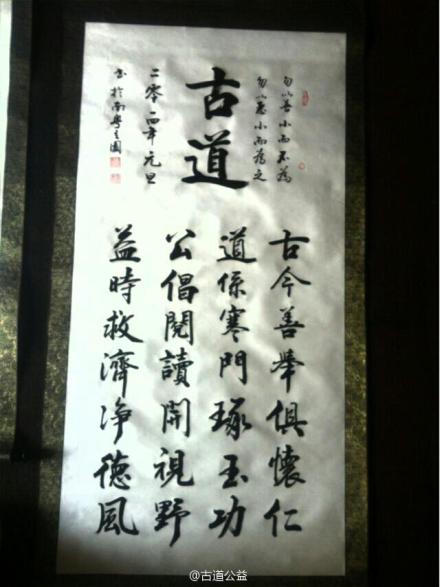 勿以善小而不為
勿以惡小而為之
古道
二零一四年元旦
书於南粤之園
古今善舉俱懷仁
道係寒門琢玉功
公倡閱讀開視野
益時救濟净德風
@古道公益